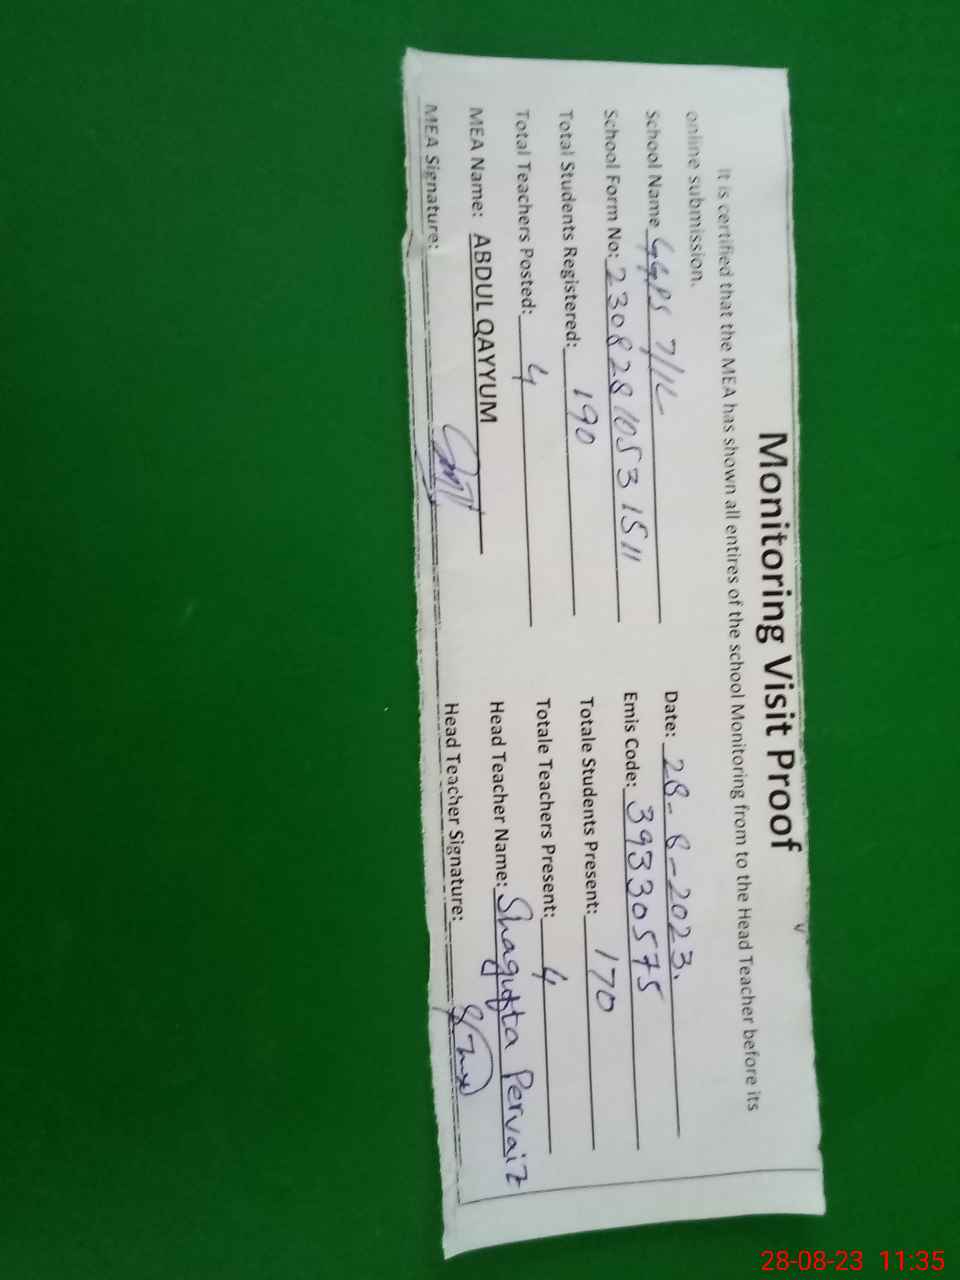 Monitoring Visit Proof
It is certified that the MEA has shown all entires of the school Monitoring from to the Head Teacher before its
online submission.
School Name GGPS 7/1L Date: 28-8-2023.
School Form No: 23082810531511 Emis Code: 39330575
Total Students Registered: 190 Totale Students Present: 170
Total Teachers Posted: 4 Totale Teachers Present: 4
MEA Name: ABDUL QAYYUM Head Teacher Name: Shagufta Pervaiz
MEA Signature: Head Teacher Signature:
28-08-23 11:35